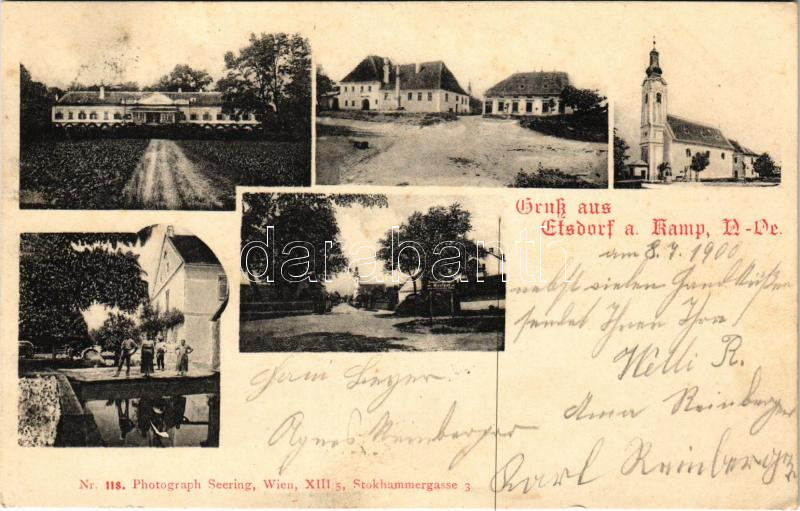 Gruß aus
Etsdorf a. Kamp, N-Oe.
am 8.7 1900
nebst vielen Handküssen
sendet Ihnen Ihre
Welli R.
Anna Reinberger
Karl Reinberger
Agnes Reinberger
darabanth
Nr. 118. Photograph Seering, Wien, XIII 5, Stokhammergasse 3